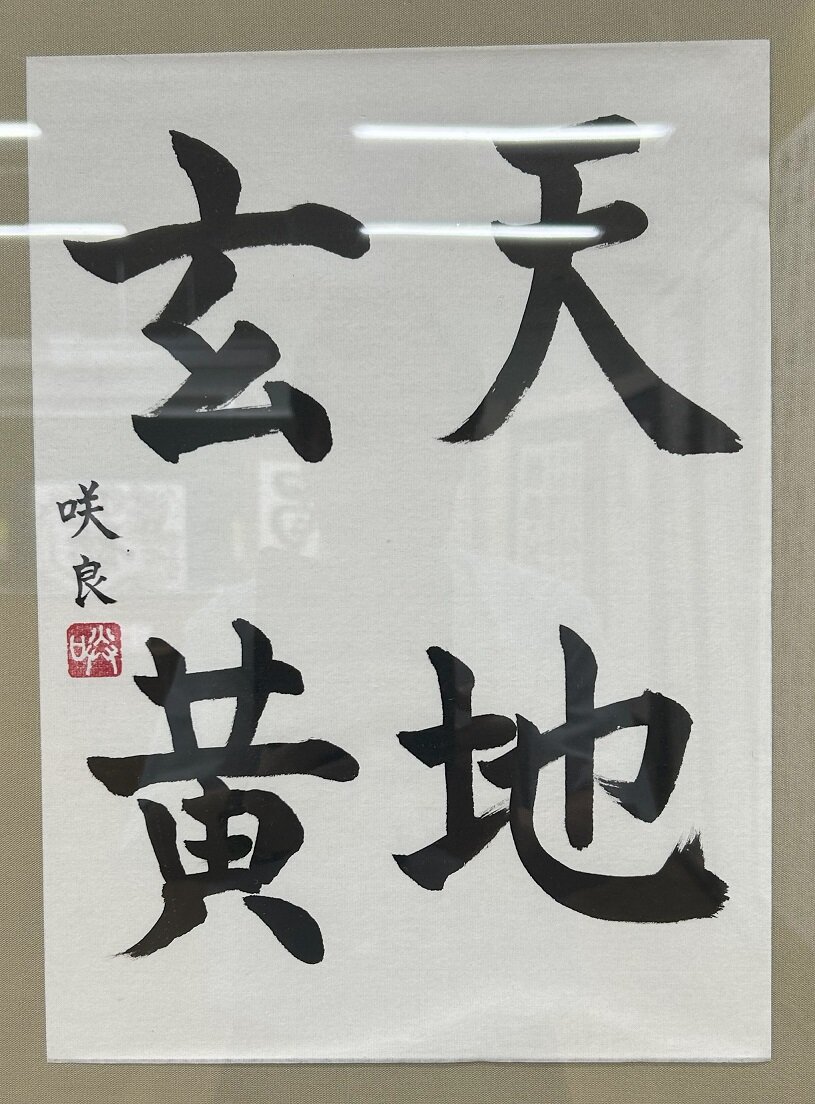 天地
玄黄
咲良